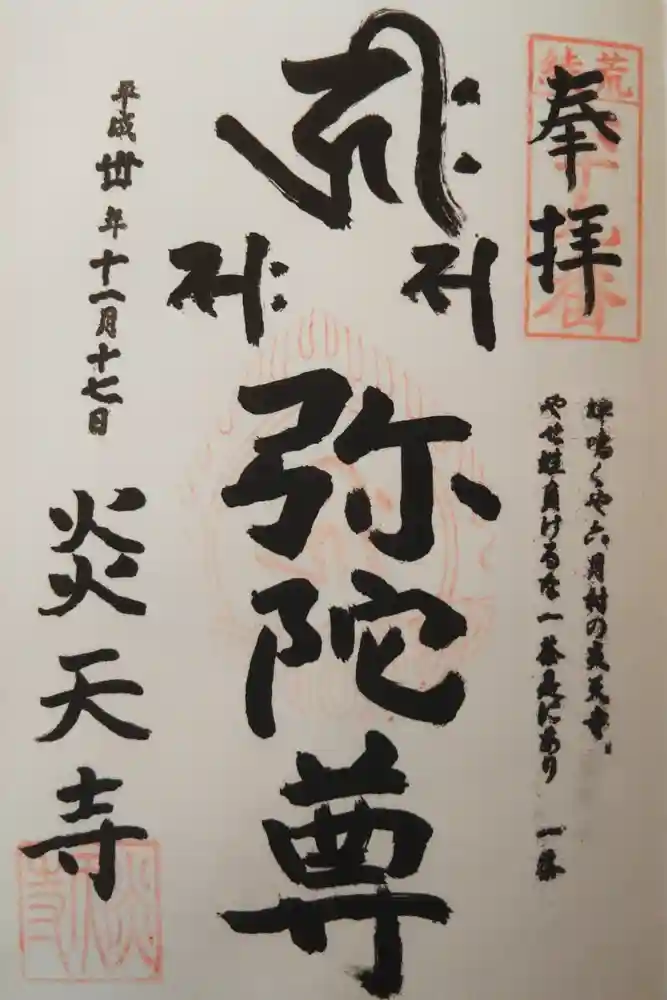 奉拝
荒綾
蝉鳴くや六月村の炎天寺
やせ蛙負けるな一茶是にあり 一茶
弥陀尊
平成丗年十一月十七日
炎天寺
炎天寺